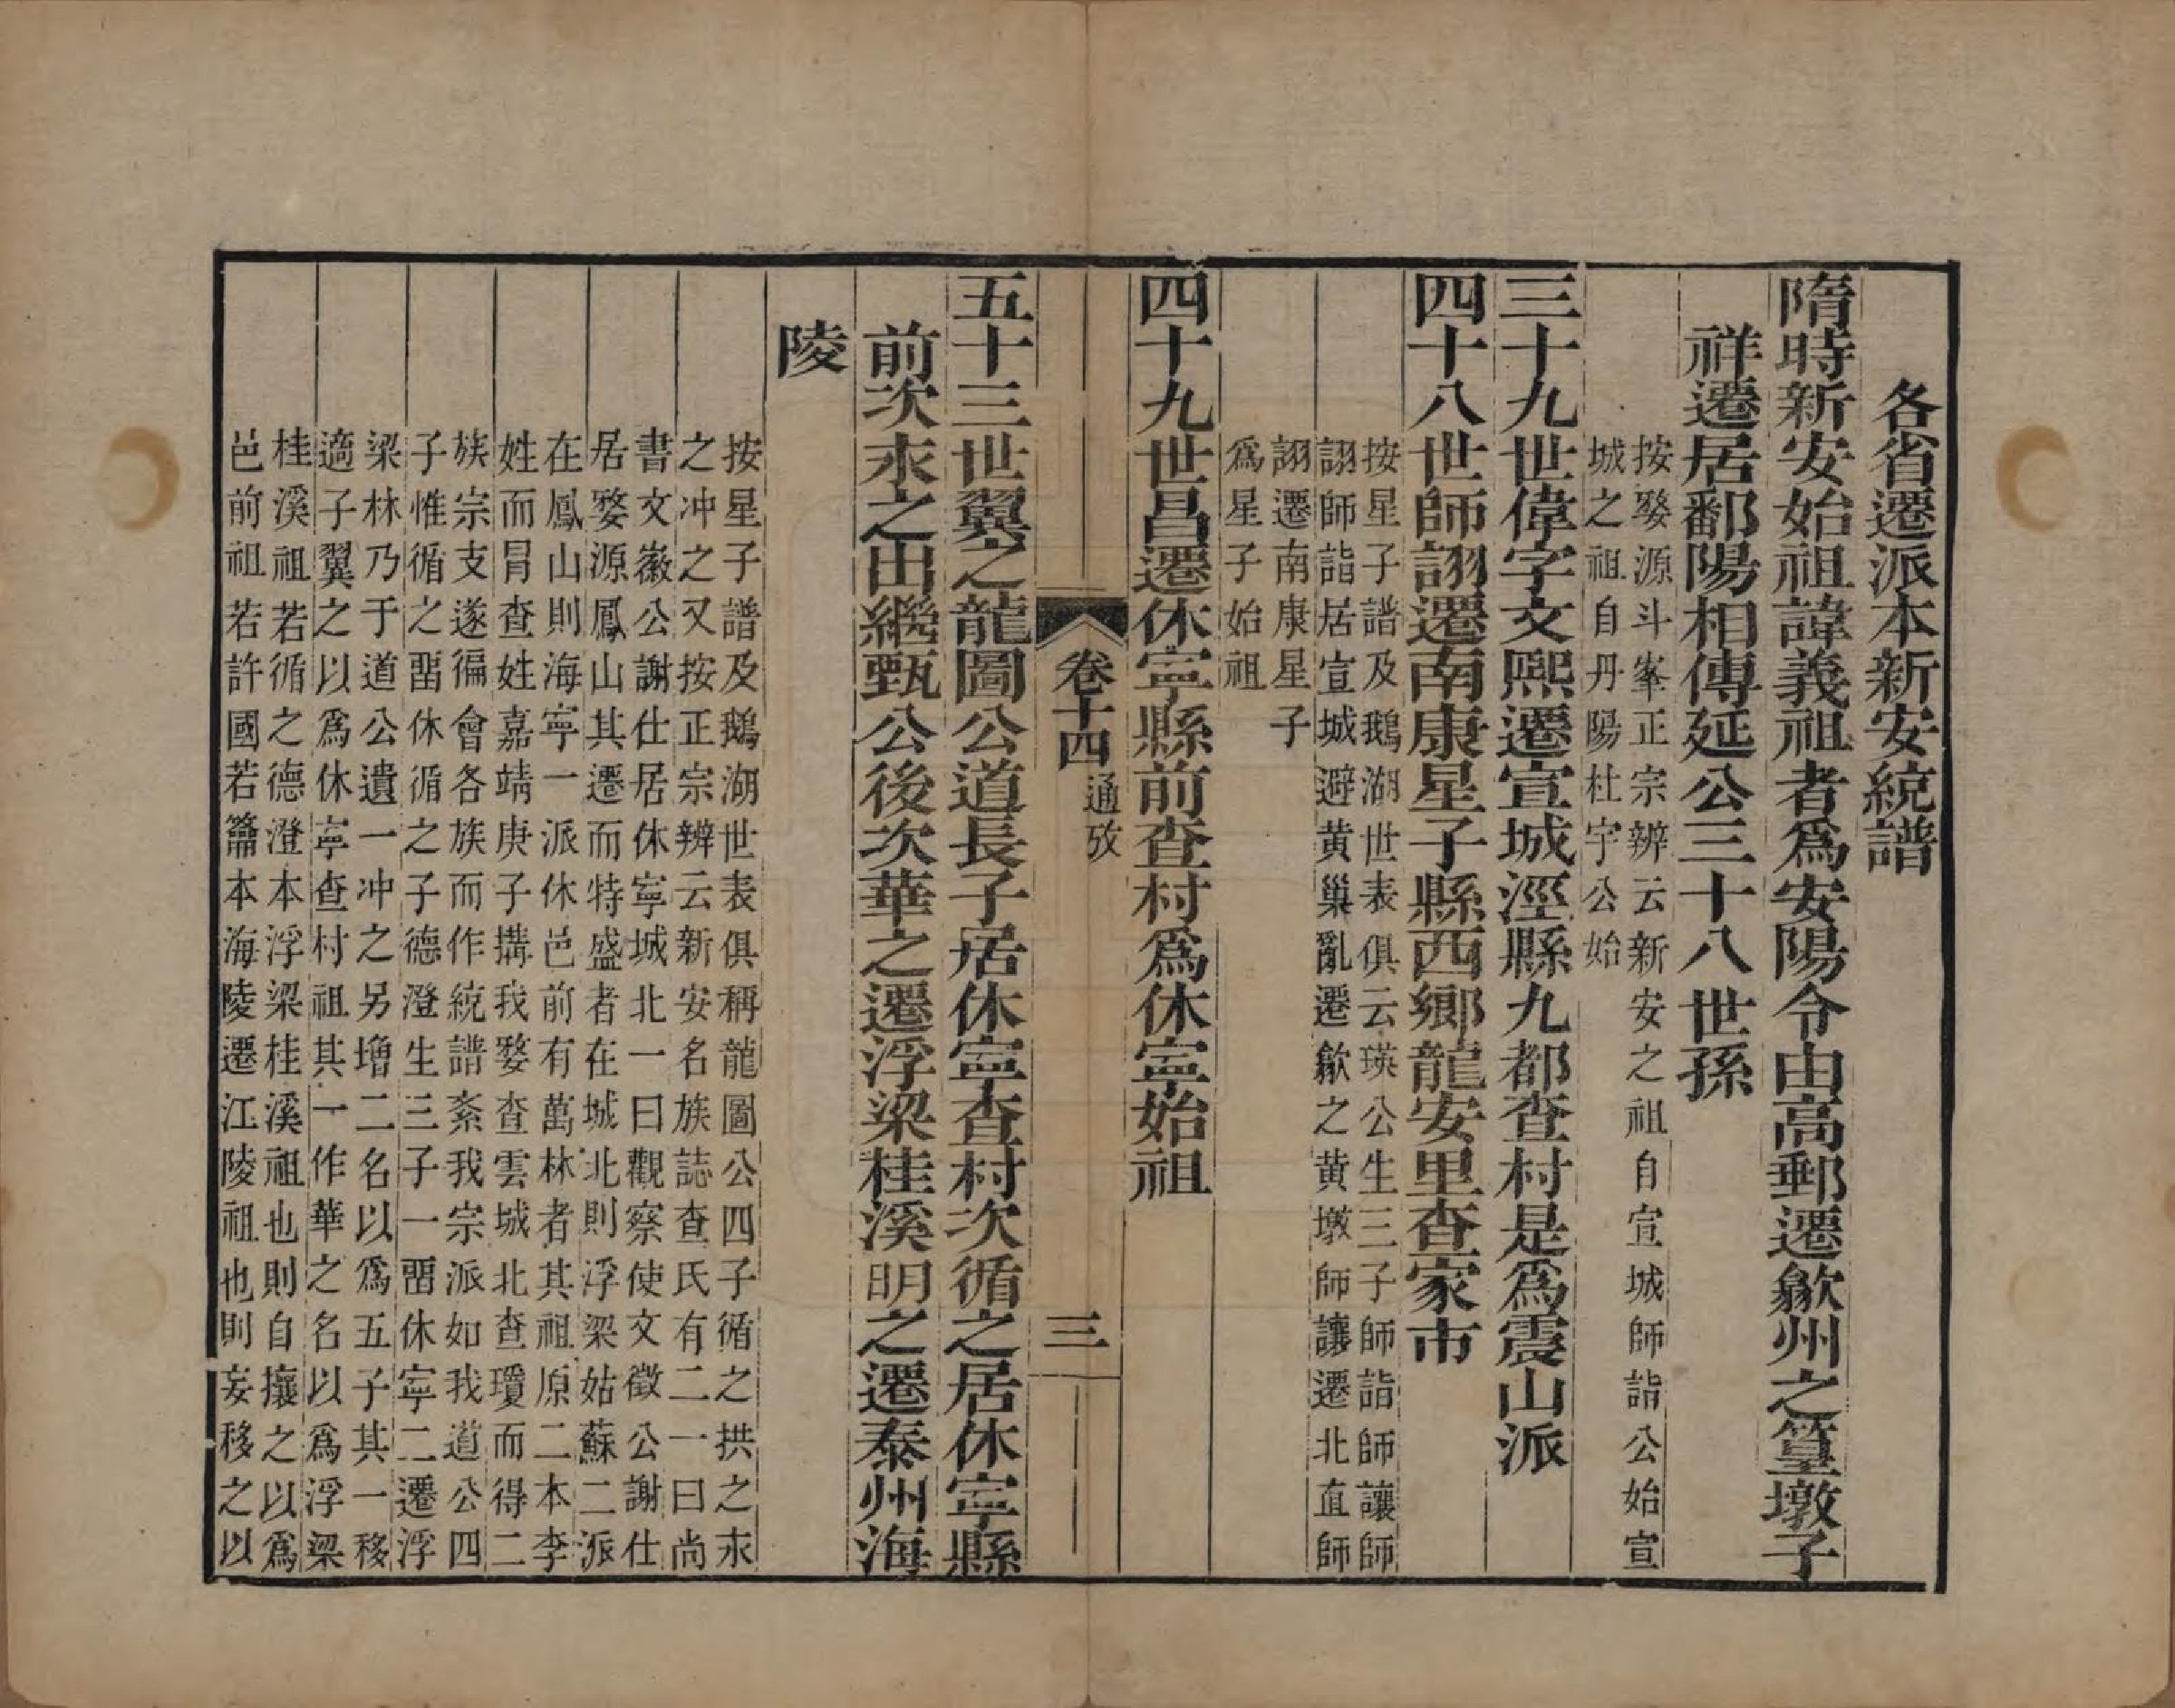 各省遷派本新安統譜
隋時新安始祖諱義祖者爲安陽令由高郵遷歙州之篁墩子
祥遷居鄱陽相傳延公三十八世孫
按婺源斗峯正宗辨云新安之祖自宣城師詣公始宣
城之祖自丹陽杜宇公始
三十九世偉字文熙遷宣城涇縣九都查村是爲震山派
四十八世師詡遷南康星子縣西鄉龍安里查家市
按星子譜及鵝湖世表俱云瑛公生三子師詣師讓師
詡師詣居宣城避黄巢亂遷歙之黄墩師讓遷北直師
詡遷南康星子
爲星子始祖
四十九世昌遷休寧縣前查村爲休寧始祖
卷十四 通攷 三
五十三世翼之龍圖公道長子居休寧查村次循之居休寧縣
前次永之出繼甄公後次華之遷浮梁桂溪明之遷泰州海
陵
按星子譜及鵝湖世表俱稱龍圖公四子循之拱之永
之冲之又按正宗辨云新安名族誌查氏有二一曰尚
書文徽公謝仕居休寧城北一曰觀察使文徵公謝仕
居婺源鳳山其遷而特盛者在城北則浮梁姑蘇二派
在鳳山則海寧一派休邑前有萬林者其祖原二本李
姓而冒查姓嘉靖庚子搆我婺查雲城北查瓊而得二
族宗支遂徧會各族而作統譜紊我宗派如我道公四
子惟循之畱休循之子德澄生三子一畱休寧二遷浮
梁林乃于道公遺一冲之另增二名以爲五子其一移
適子翼之以爲休寧查村祖其一作華之名以爲浮梁
桂溪祖若循之德澄本浮梁桂溪祖也則自攘之以爲
邑前祖若許國若籥本海陵遷江陵祖也則妄移之以